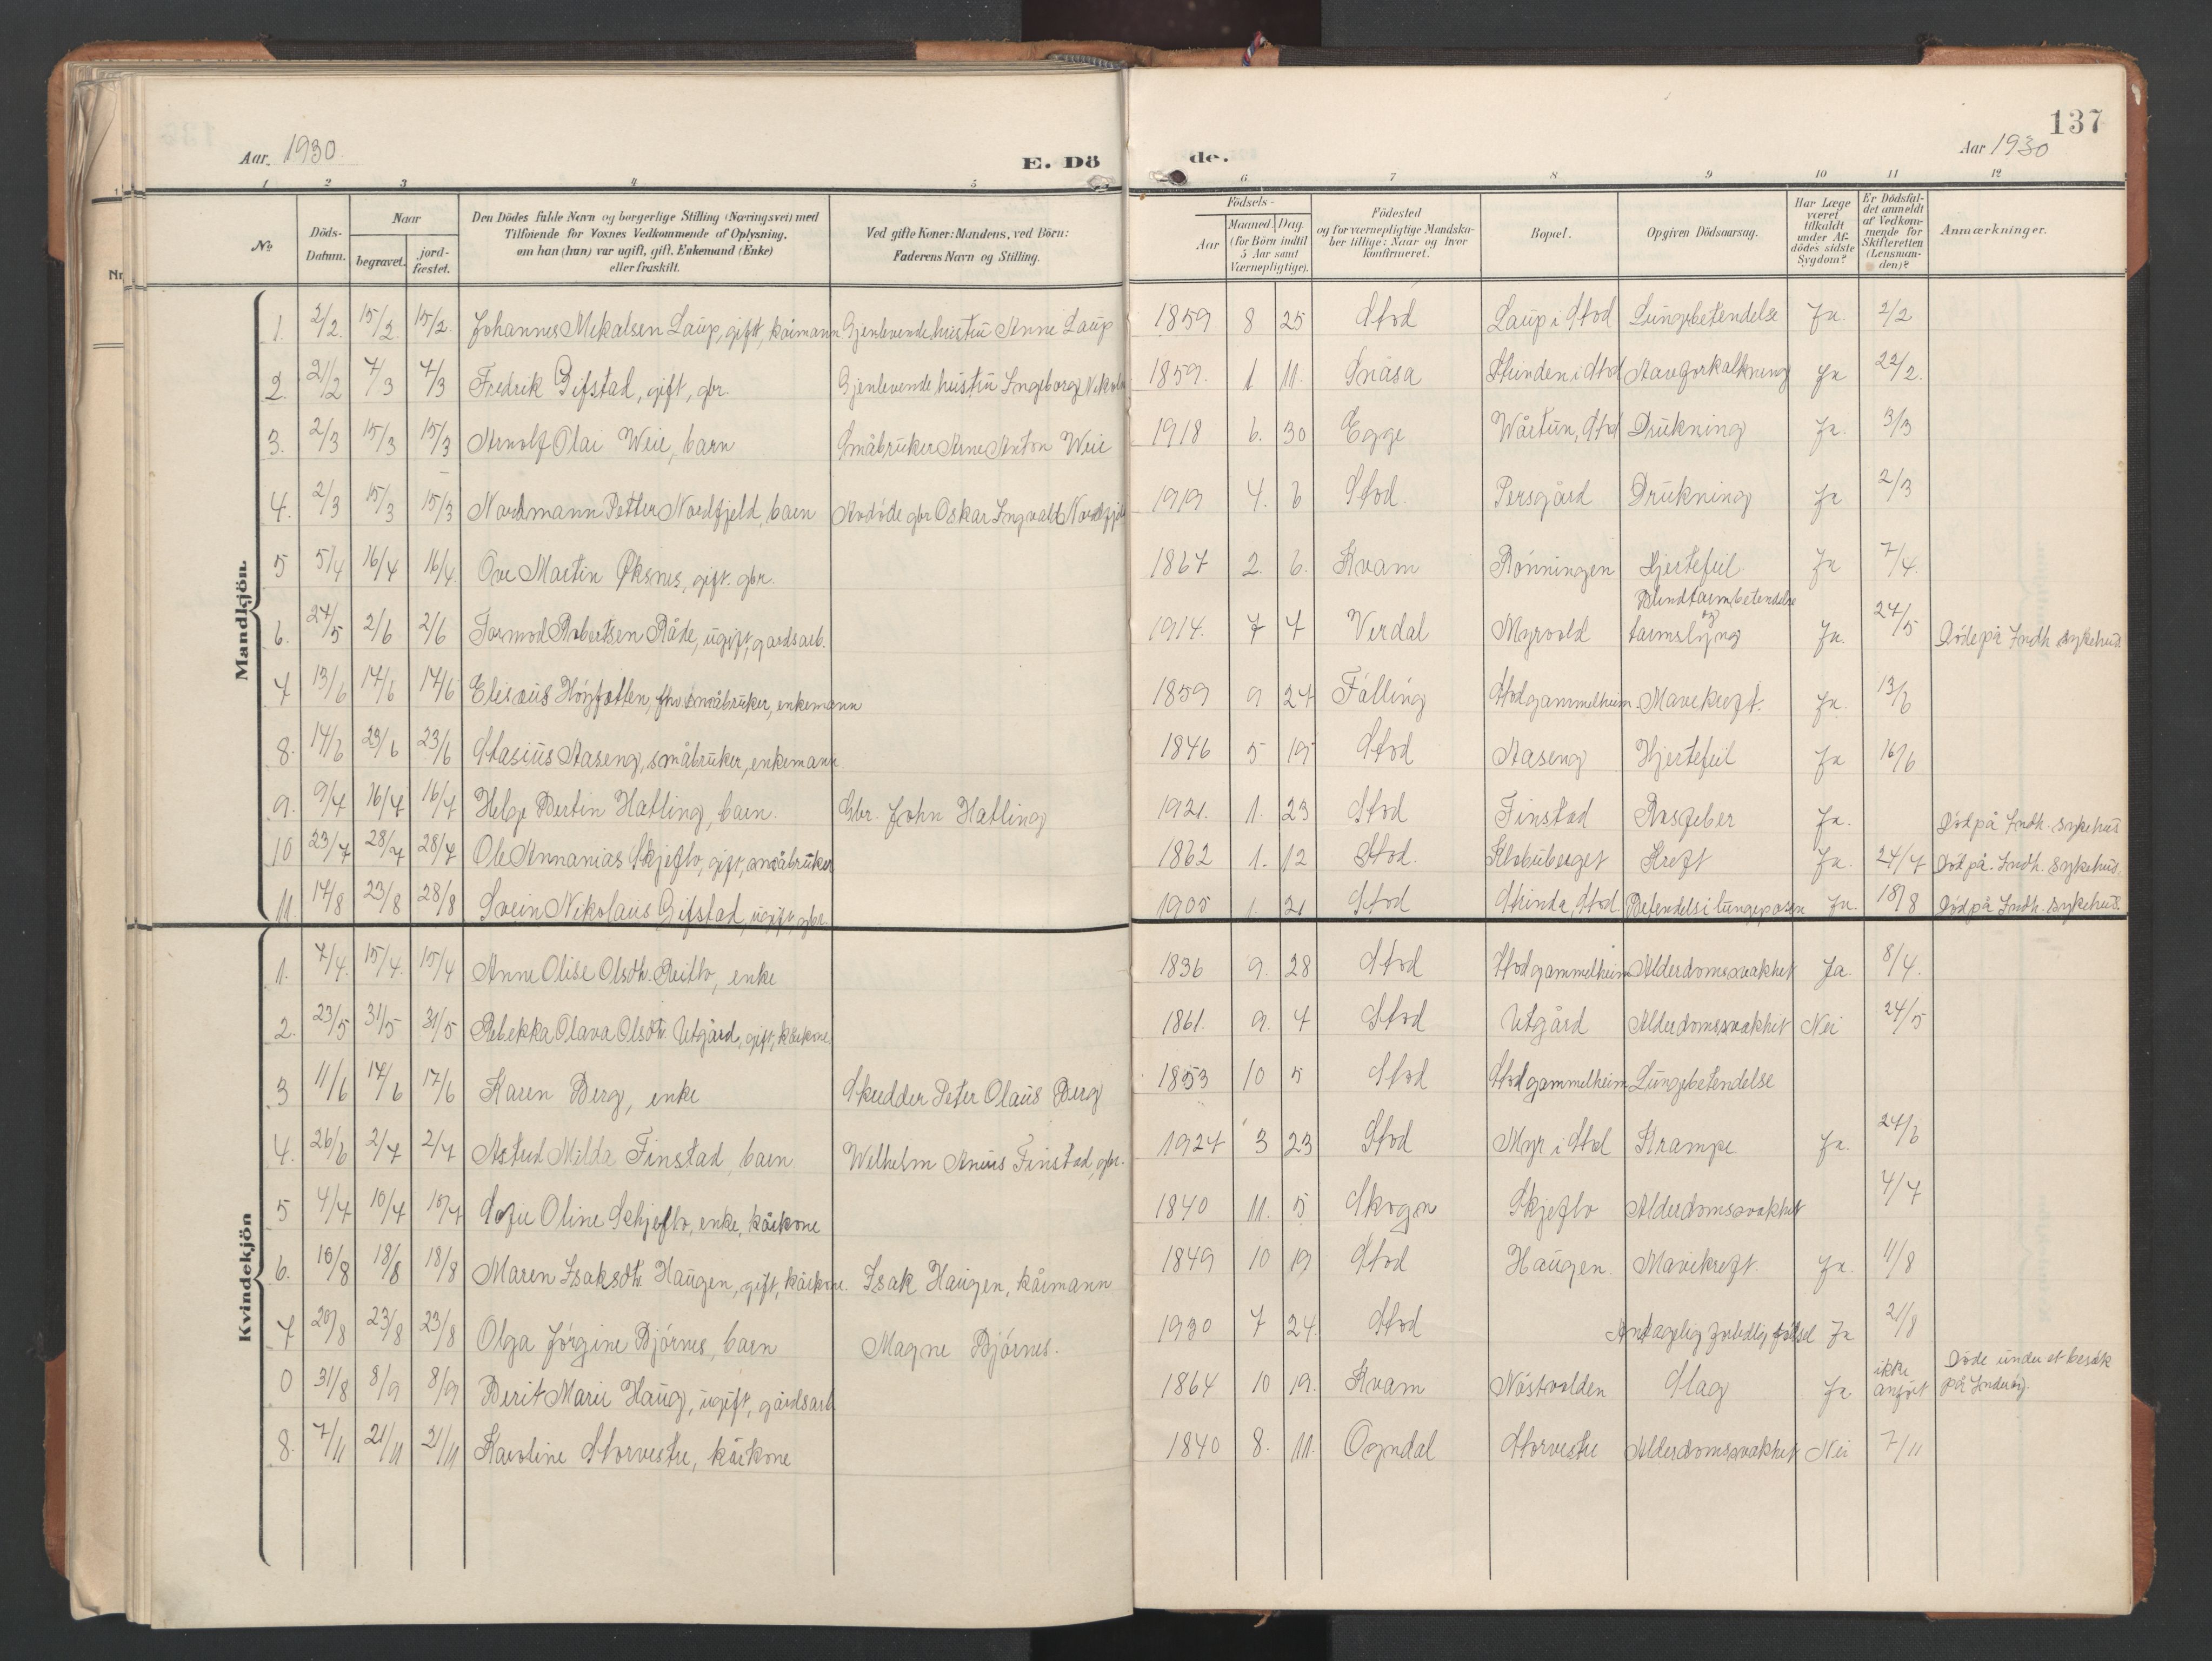 137
Aar 1930.
E. Dö
de.
Aar 1930
1 2 3 4 5 6 7 8 9 10 11 12
No
Döds-Datum.
Naar
begravet.
jord-fæstet.
Den Dödes fulde Navn og borgerlige Stilling (Næringsvei) med
Tilföiende for Voxnes Vedkommende af Oplysning,
om han (hun) var ugift, gift, Enkemand (Enke)
eller fraskilt.
Ved gifte Koner: Mandens, ved Börn:
Faderens Navn og Stilling.
Födsels-
Aar
Maaned. Dag.
(for Börn indtil
5 Aar samt
Værnepligtige).
Födested
og for værnepligtige Mandska-
ber tillige: Naar og hvor
konfirmeret.
Bopæl.
Opgiven Dödsaarsag.
Har Læge
været
tilkaldt
under Af-
dödes sidste
Sygdom?
Er Dödsfal-
det anmeldt
af Vedkom-
mende for
Skifteretten
(Lensman-
den)?
Anmærkninger.
Mandkjön.
1. 2/2. 15/2. 15/2. Johannes Mikalsen Laup, gift, kårmann Gjenlevende hustru Anne Laup 1859 8 25 Stod Laup i Stod Lungebetendelse Ja. 2/2
2. 21/2 7/3 7/3 Fredrik Gifstad, gift, gbr. Gjenlevende hustru Ingeborg 1859. 1 11. Snåsa Strinden i Stod Aareforkalkning Ja 22/2.
3. 2/3 15/3 15/3 Arnolf Olai Weie, barn Småbruker Arne Anton Weie 1918 6. 30 Egge Wårtun, Stod Drukning Ja. 3/3
4. 2/3 15/3 15/3 Nordmann Petter Nordfjeld, barn Avdöde gbr Oskar Ingvald Nordfjeld 1919 4. 6 Stod. Persgård Drukning Ja 2/3
5 5/4 16/4 16/4. Ove Martin Øksnes, gift. gbr. 1867 2. 6. Kvam Rönningen Hjertefeil Ja 7/4.
6. 24/5 2/6 2/6 Tormod Robertsen Råde, ugift, gardsarb. 1914. 7 7 Verdal Myrvold Blindtarmbetendelse og tarmslyng Ja. 24/5 Döde på Indh. sykehus.
7 13/6 17/6 17/6 Eliseus Höyfatten, fhv småbruker, enkemann 1859 9 27 Fölling Stodgammelheim Mavekreft. Ja. 13/6
8. 14/6 23/6 23/6 Stasius Aaseng, småbruker, enkemann 1846 5 19 Stod Aaseng Hjertefeil Ja 16/6
9. 9/7 16/7 16/7 Helge Bertin Hatling, barn. Gbr. John Hatling 1921. 1. 23 Stod Finstad Rosfeber Ja. Död på Indh. sykehus
10 23/7 28/7 28/7 Ole Annanias Skjeflo, gift, småbruker 1862 1. 12 Stod. Kreft Ja. 24/7 Död på. Indh. sykehus.
11. 17/8 23/8 28/8 Svein Nikolaus Gifstad, ugift, gbr. 1905 1. 21 Stod Strinda, Stod Betendels i lungeposen Ja. 18/8 Död på Indh. sykehus.
Kvindekjön
1. 7/4. 15/4. 15/4 Anne Olise Olsdtr. Reitlo, enke 1836 9. 28 Stod Stodgammelheim Alderdomssvakhet Ja. 8/4.
2. 23/5 31/5 31/5 Rebekka Olava Olsdtr. Utgård, gift, kårkone. 1861. 9. 7 Stod Utgård Alderdomssvakhet Nei 24/5
3 11/6 17/6 17/6 Karen Berg, enke Skredder Peter Olaus Berg 1853 10 5 Stod Stodgammelheim Lungebetendelse
4. 26/6 2/7 2/7 Astrid Milda Finstad barn Wilhelm Anius Finstad, gbr. 1927 3 23 Stod Myr i Stod Krampe Ja. 27/6
5 4/7 10/7 10/7 Sofie Oline Schjeflo, enke, kårkone 1840 11. 5 Skogn Skjeflo Alderdomssvakhet 4/7
6. 10/8 18/8 18/8 Maren Isaksdtr. Haugen, gift, kårkone. Isak Haugen, kårmann 1849 10 19 Stod Haugen. Mavekreft. Ja. 11/8
7 20/8 23/8 23/8 Olga Jörgine Björnes, barn Magne Björnes. 1930 7 24. Stod Antagelig fortidlig födsel Ja 21/8
0 31/8 8/9 8/9 Berit Marie Haug, ugift, gårdsarb 1864 10 19. Kvam Nöstvolden Slag Ja ikke anfört Döde under et besök på Inderöy.
8. 7/11 21/11 21/11 Karoline Storvestre, kårkone 1840 8. 11. Ogndal Storvestre Alderdomssvakhet Nei 7/11